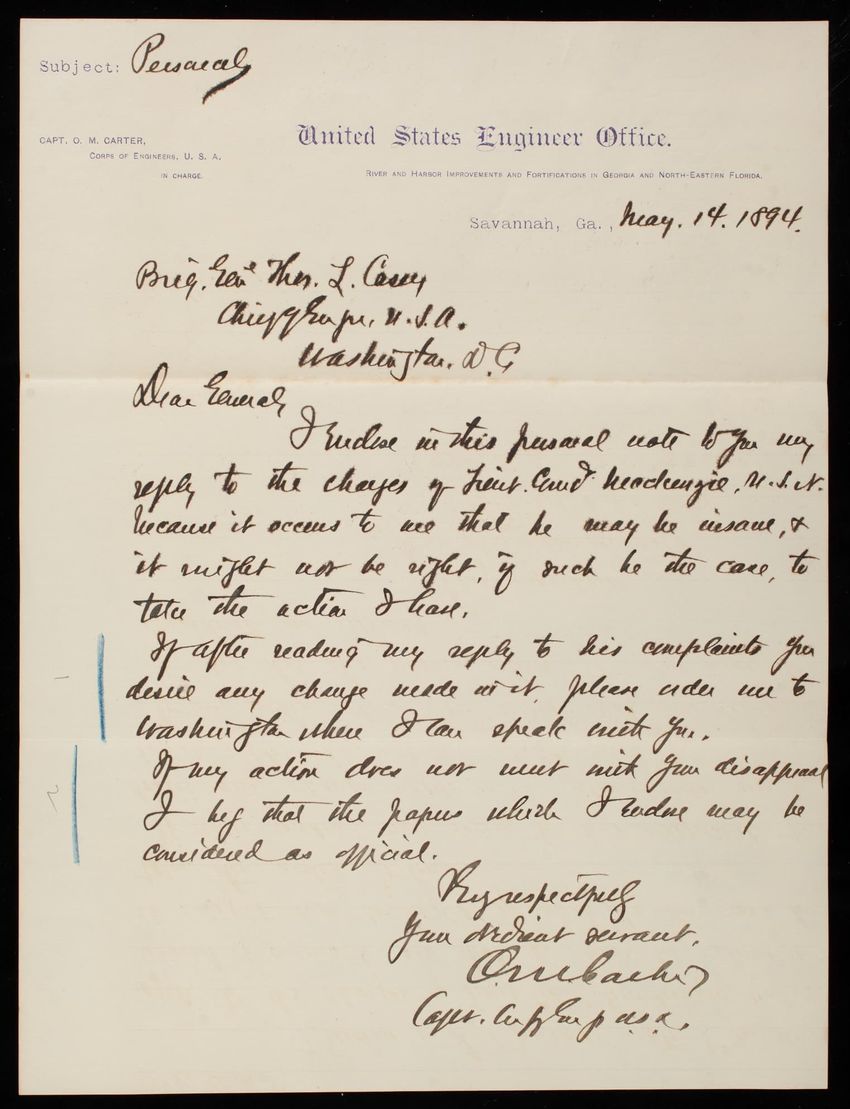 Subject: Personal
CAPT. O. M. CARTER,
CORPS OF ENGINEERS, U. S. A.
IN CHARGE.
United States Engineer Office.
RIVER AND HARBOR IMPROVEMENTS AND FORTIFICATIONS IN GEORGIA AND NORTH-EASTERN FLORIDA.
Savannah, Ga., May. 14. 1894.
Brig. Genl Thos. L. Casey
Chief of Engrs. U.S.A.
Washington. D.C
Dear General,
I enclose in this personal note to you my
reply to the charges of Lieut. Comd Mackenzie, U.S.N.
because it occurs to me that he may be insane, &
it might not be right, if such be the case, to
take the action I have.
If after reading my reply to his complaints you
desire any change made in it, please order me to
Washington where I can speak with you.
If my action does not meet with your disapproval
I beg that the papers which I enclose may be
considered as official.
Very respectfully
Your obedient servant,
O. M. Carter
Capt. Corps of Engrs U.S.A.